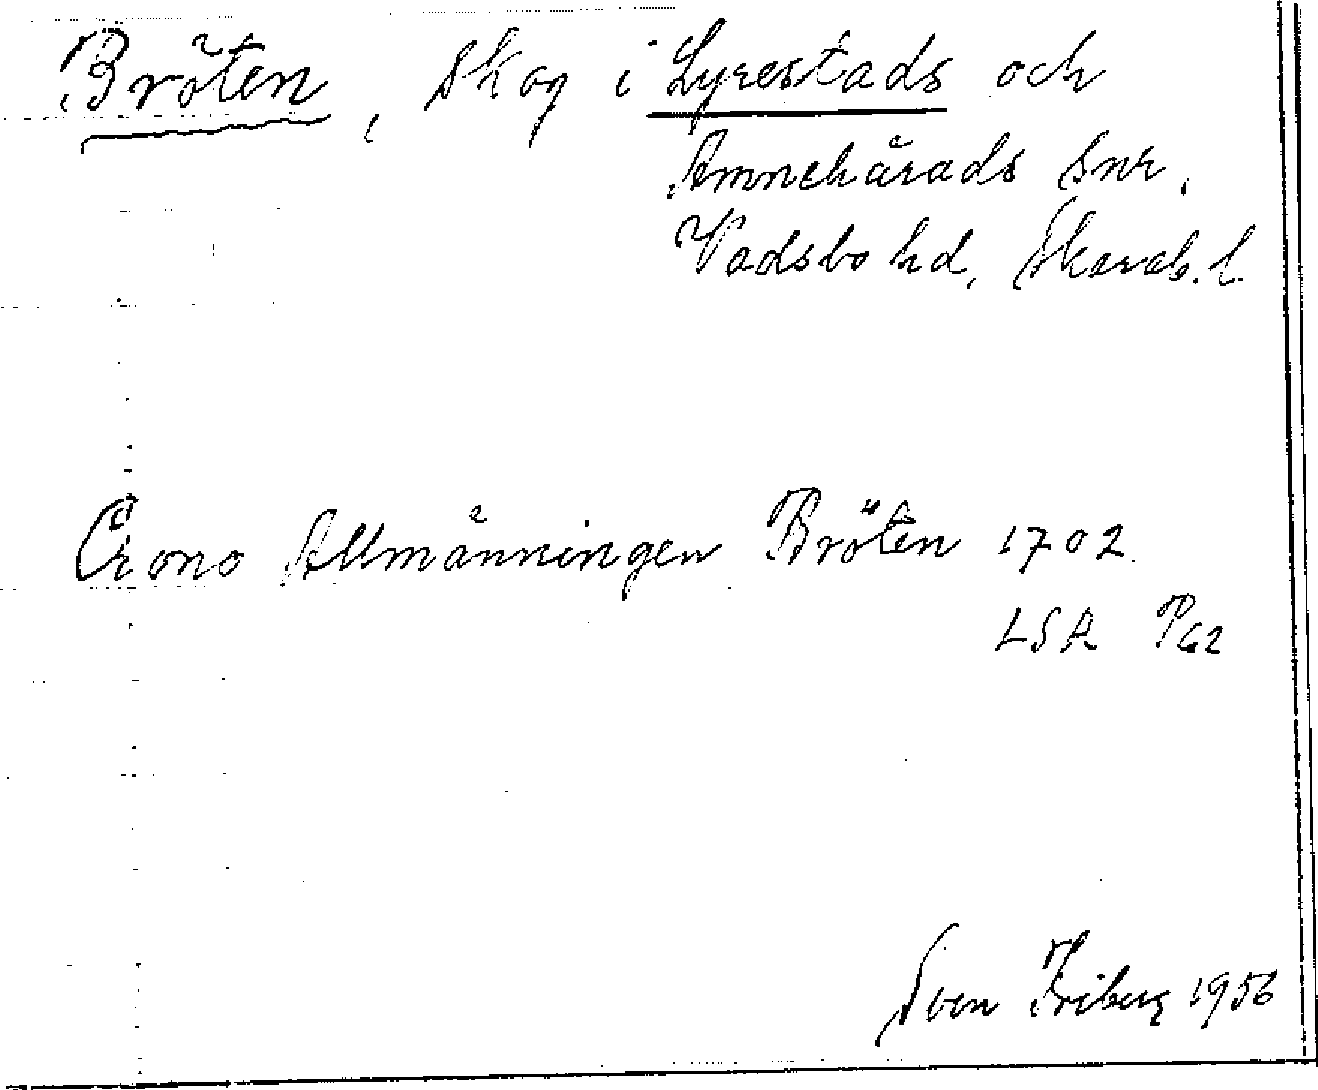 Bröten, skog i Lyrestads och
Amnehärads snr,
Vadsbo hd, Skarab. l.
Crono Allmänningen Bröten 1702
LSA P62
Sven Friberg 1956